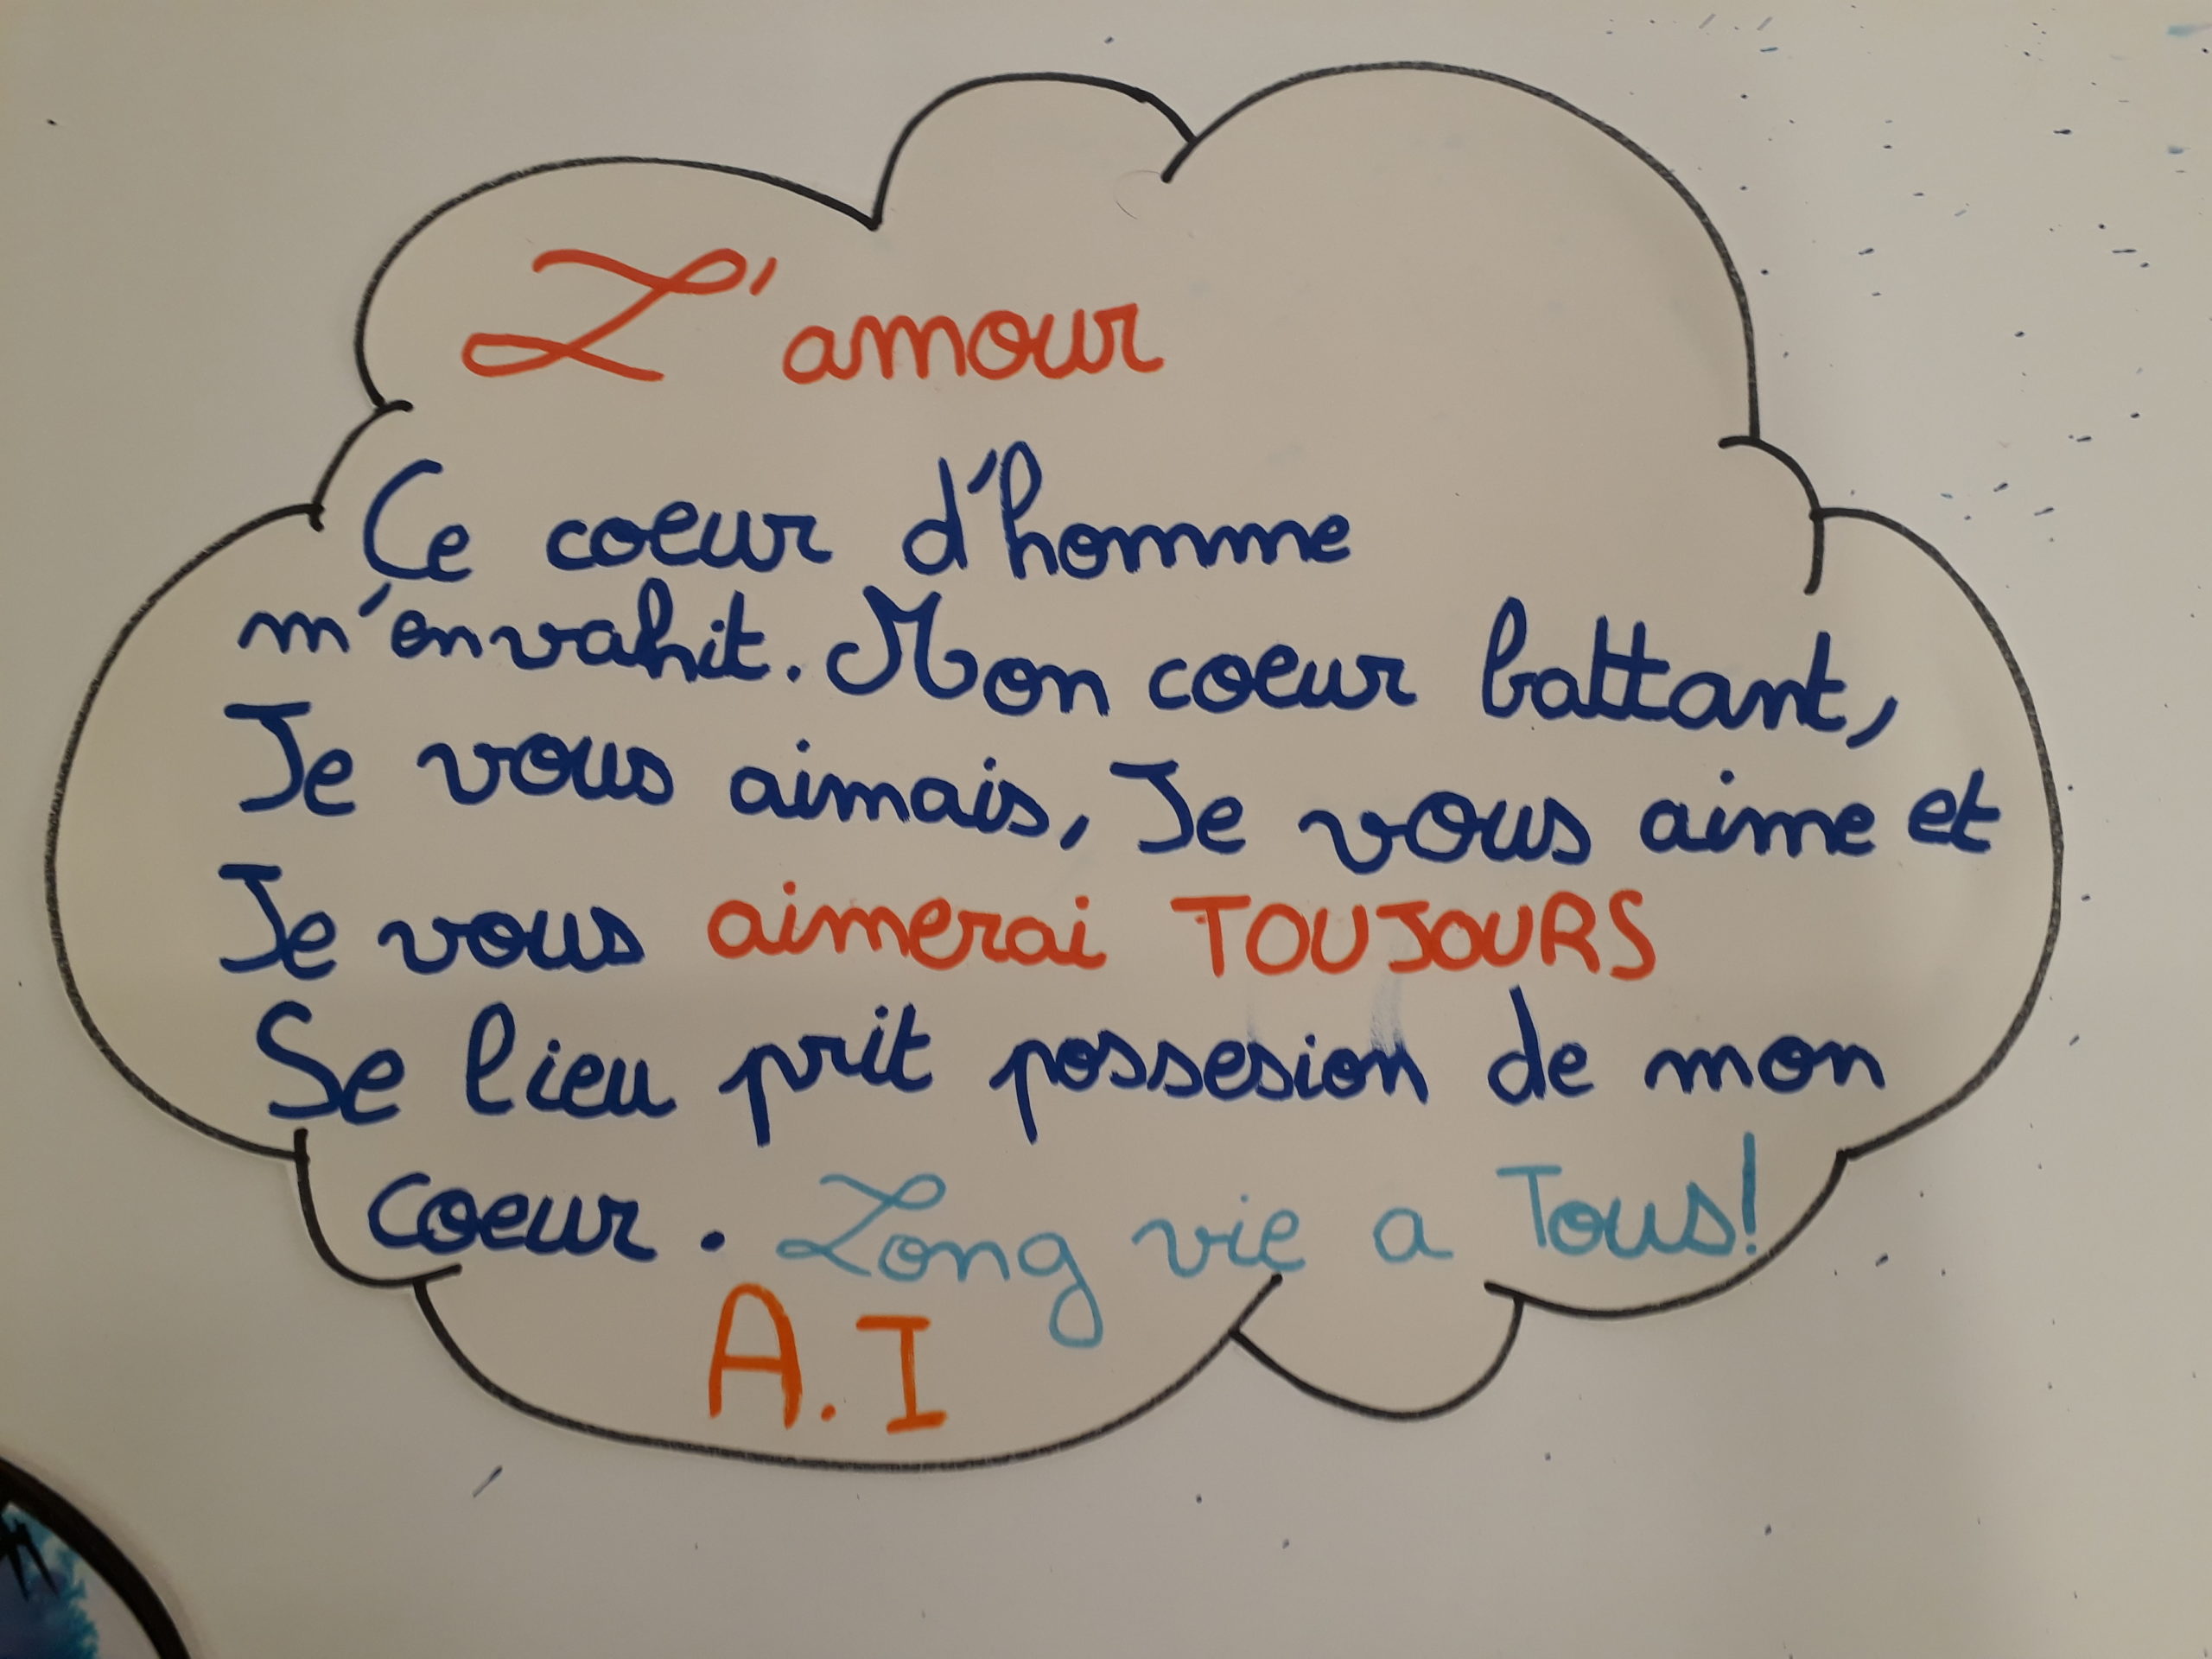 L'amour
Ce coeur d'homme
m'envahit. Mon coeur battant,
Je vous aimais, Je vous aime et
Je vous aimerai TOUJOURS
Se lieu prit possesion de mon
coeur. Long vie a Tous!
A.I